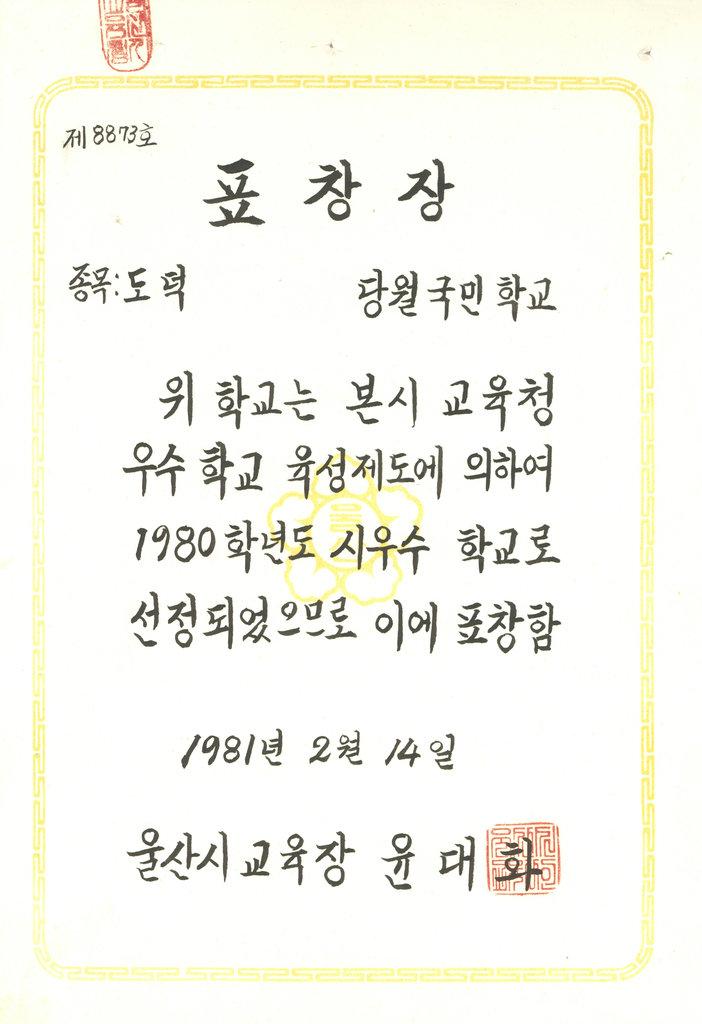 제 8873호
표 창 장
종목: 도덕
당월 국민 학교
위 학교는 본시 교육청
우수 학교 육성제도에 의하여
1980 학년도 시우수 학교로
선정되었으므로 이에 표창함
1981년 2월 14일
울산시 교육장 윤 대 화